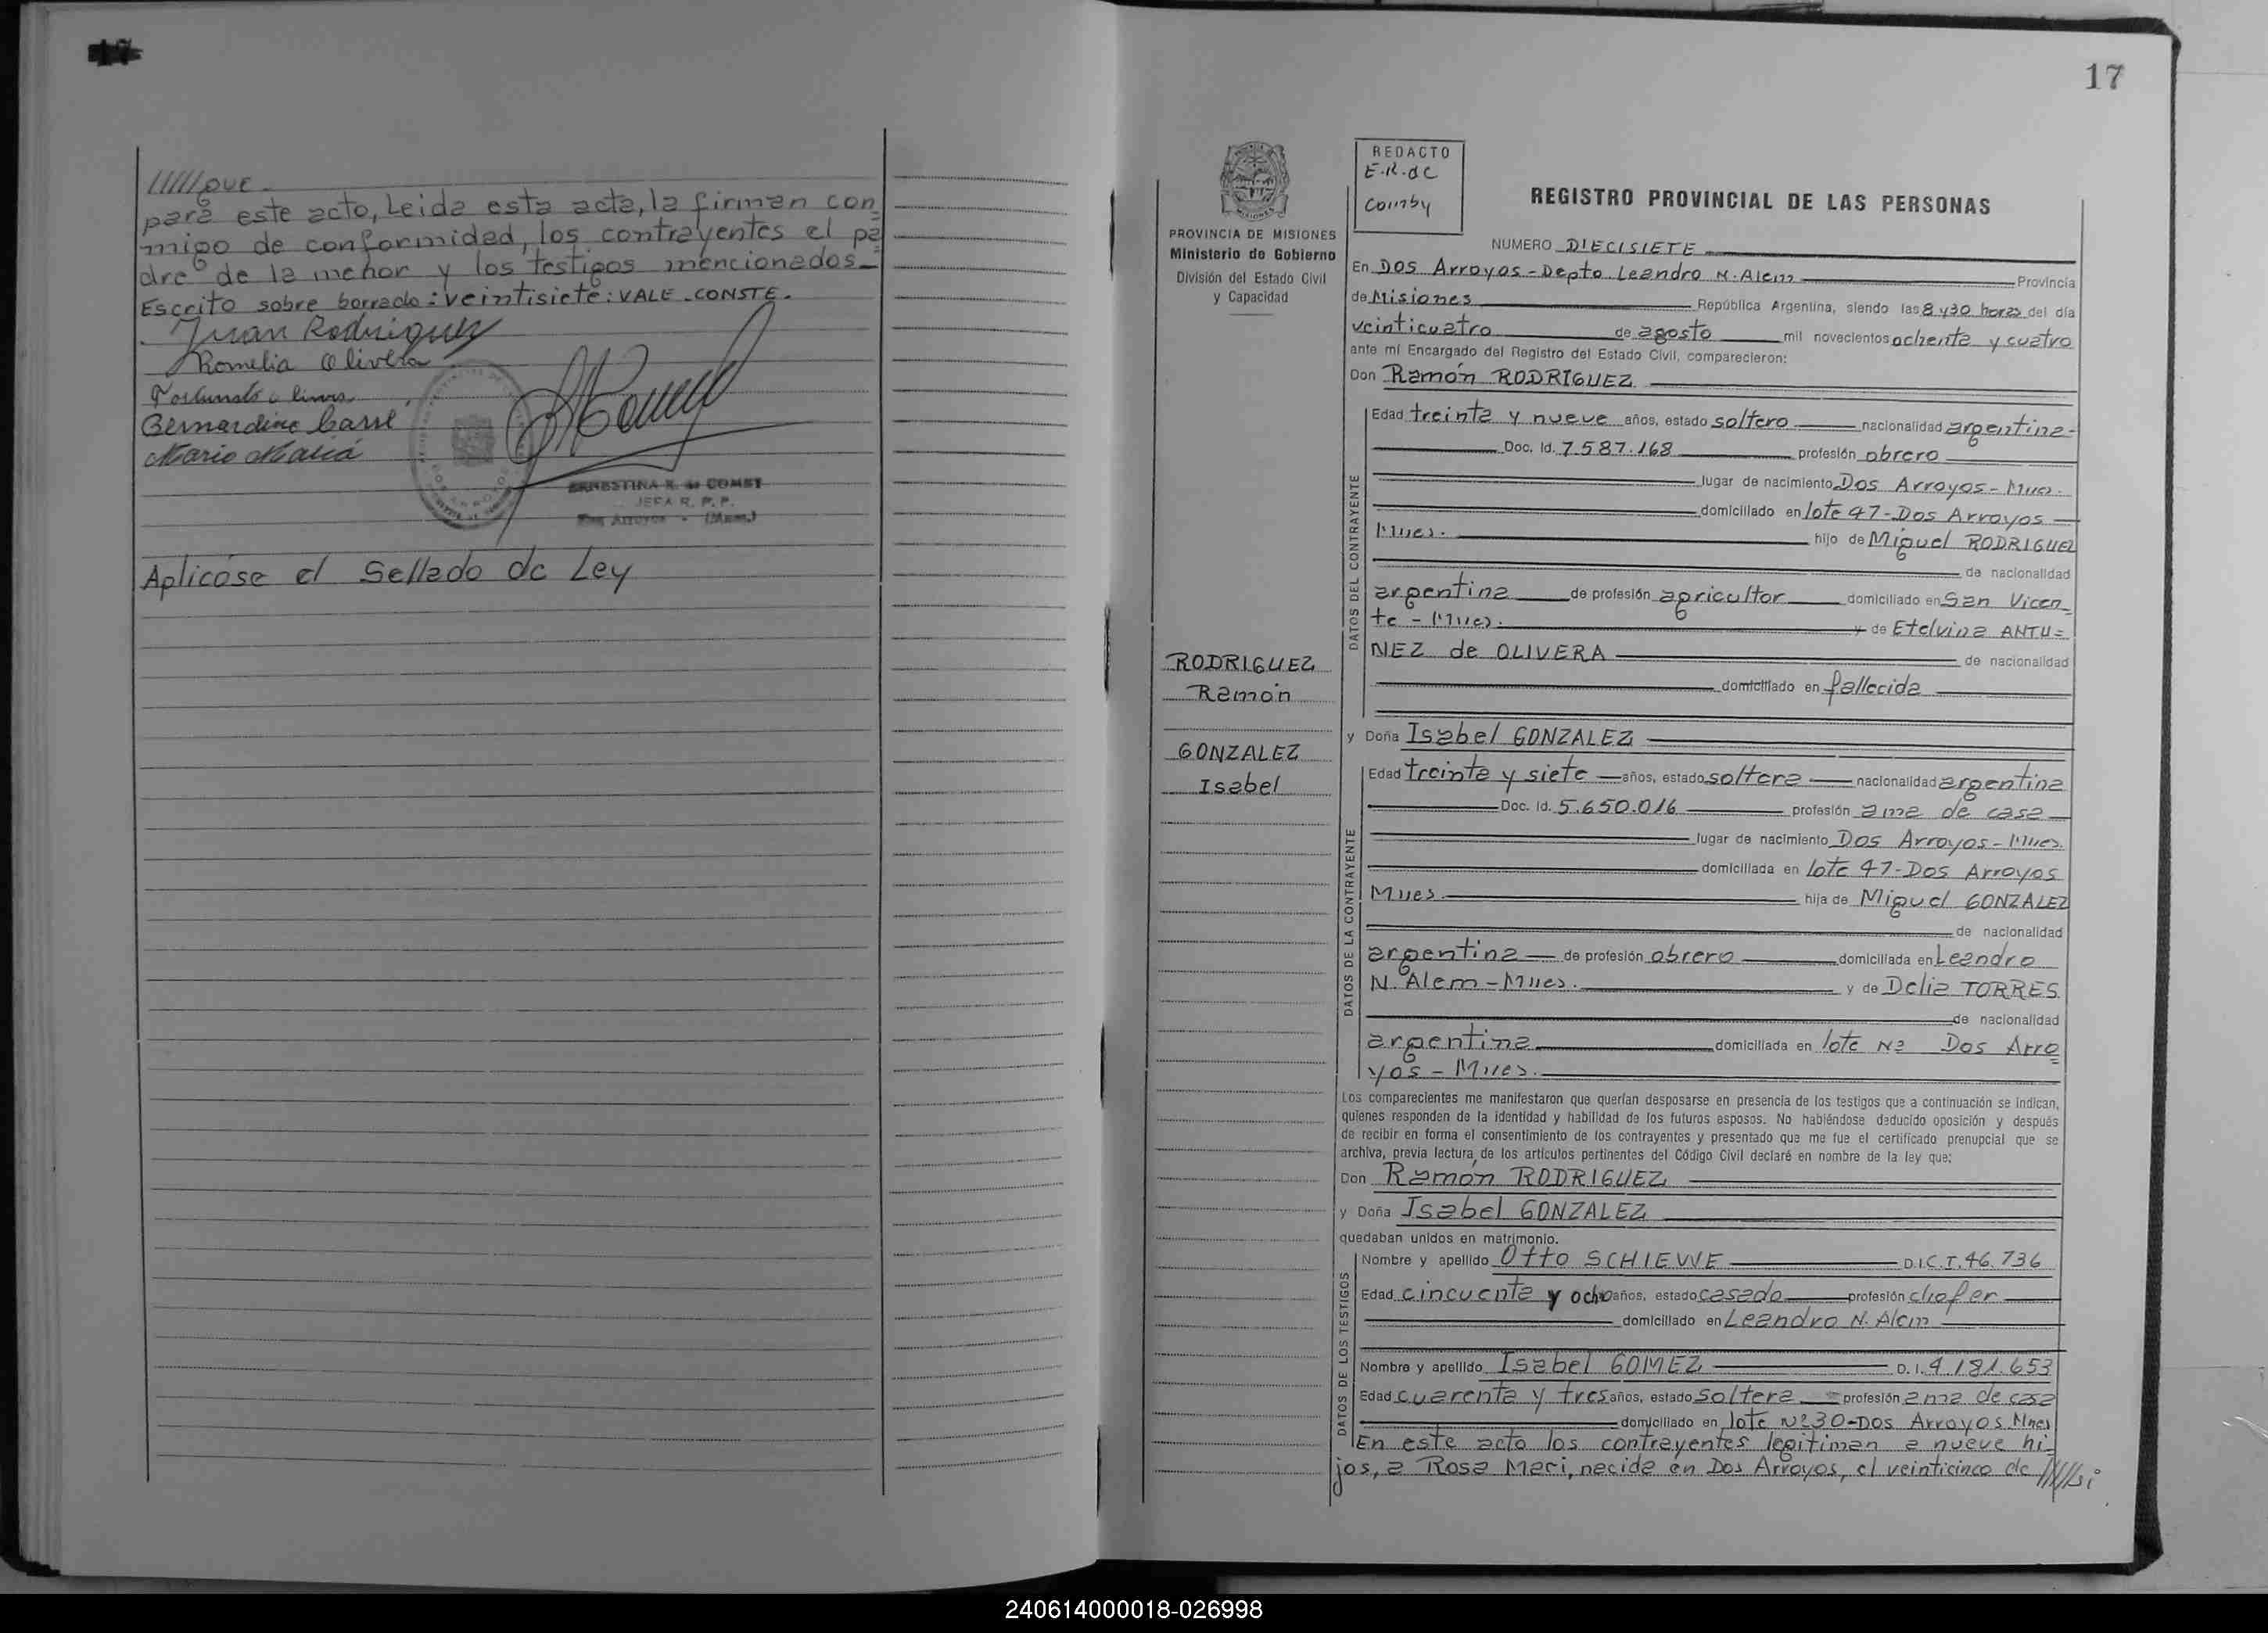 /////que
para este acto, Leida esta acta, la firman con
migo de conformidad, los contrayentes el pa
dre de la menor y los testigos mencionados
Escrito sobre borrado: veintisiete: VALE. CONSTE.
Juan Rodriguez
Romelia Olivera
Bernardino
Mario
ERNESTINA R. de COMBY
JEFA R. P. P.
Dos Arroyos - (Mnes.)
Aplicóse el Sellado de Ley
17
REDACTO
E.R.de
Comby
REGISTRO PROVINCIAL DE LAS PERSONAS
PROVINCIA DE MISIONES
Ministerio de Gobierno
División del Estado Civil
y Capacidad
RODRIGUEZ
Ramón
GONZALEZ
Isabel
NUMERO DIECISIETE
En Dos Arroyos - Depto Leandro N. Alem Provincia
de Misiones República Argentina, siendo las 8 y 30 horas del día
veinticuatro de agosto mil novecientos ochenta y cuatro
ante mí Encargado del Registro del Estado Civil, comparecieron:
Don Ramón RODRIGUEZ
DATOS DEL CONTRAYENTE
Edad treinta y nueve años, estado soltero nacionalidad argentina
Doc. Id. 7.587.168 profesión obrero
lugar de nacimiento Dos Arroyos - Mnes.
domiciliado en lote 47 - Dos Arroyos
Mnes. hijo de Miguel RODRIGUEZ
de nacionalidad
argentina de profesión agricultor domiciliado en San Vicen
te - Mnes. y de Etelvina ANTU=
NEZ de OLIVERA de nacionalidad
domiciliado en fallecida
y Doña Isabel GONZALEZ
DATOS DE LA CONTRAYENTE
Edad treinta y siete años, estado soltera nacionalidad argentina
Doc. Id. 5.650.016 profesión ama de casa
lugar de nacimiento Dos Arroyos - Mnes.
domiciliada en lote 47 - Dos Arroyos
Mnes. hija de Miguel GONZALEZ
de nacionalidad
argentina de profesión obrero domiciliada en Leandro
N. Alem - Mnes. y de Delia TORRES
de nacionalidad
argentina domiciliada en lote Nº Dos Arro
yos - Mnes.
Los comparecientes me manifestaron que querían desposarse en presencia de los testigos que a continuación se indican,
quienes responden de la identidad y habilidad de los futuros esposos. No habiéndose deducido oposición y después
de recibir en forma el consentimiento de los contrayentes y presentado que me fue el certificado prenupcial que se
archiva, previa lectura de los artículos pertinentes del Código Civil declaré en nombre de la ley que:
Don Ramón RODRIGUEZ
y Doña Isabel GONZALEZ
quedaban unidos en matrimonio.
DATOS DE LOS TESTIGOS
Nombre y apellido Otto SCHIEWE D.I.C.I. 46.736
Edad cincuenta y ocho años, estado casado profesión chofer
domiciliado en Leandro N. Alem
Nombre y apellido Isabel GOMEZ D. I. 4.181.653
Edad cuarenta y tres años, estado soltera profesión ama de casa
domiciliado en lote Nº 30 - Dos Arroyos Mnes
En este acto los contrayentes legitiman a nueve hi
jos, a Rosa Mari, nacida en Dos Arroyos, el veinticinco de /////si
240614000018-026998